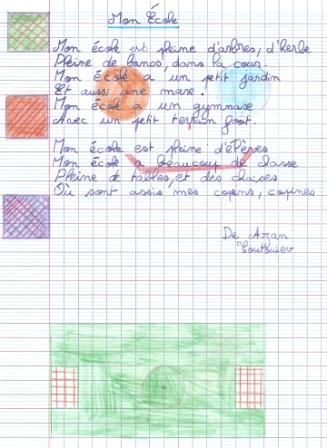 Mon École
Mon école est pleine d'arbres, d'herbe
Pleine de bancs, dans la cour.
Mon école a un petit jardin
Et aussi une mare!
Mon école a un gymnase
Avec un petit terrain foot.
Mon école est pleine d'élèves
Mon école a beaucoup de classe
Pleine de tables, et des chaises
Où sont assis mes copins, copines
De Azzan